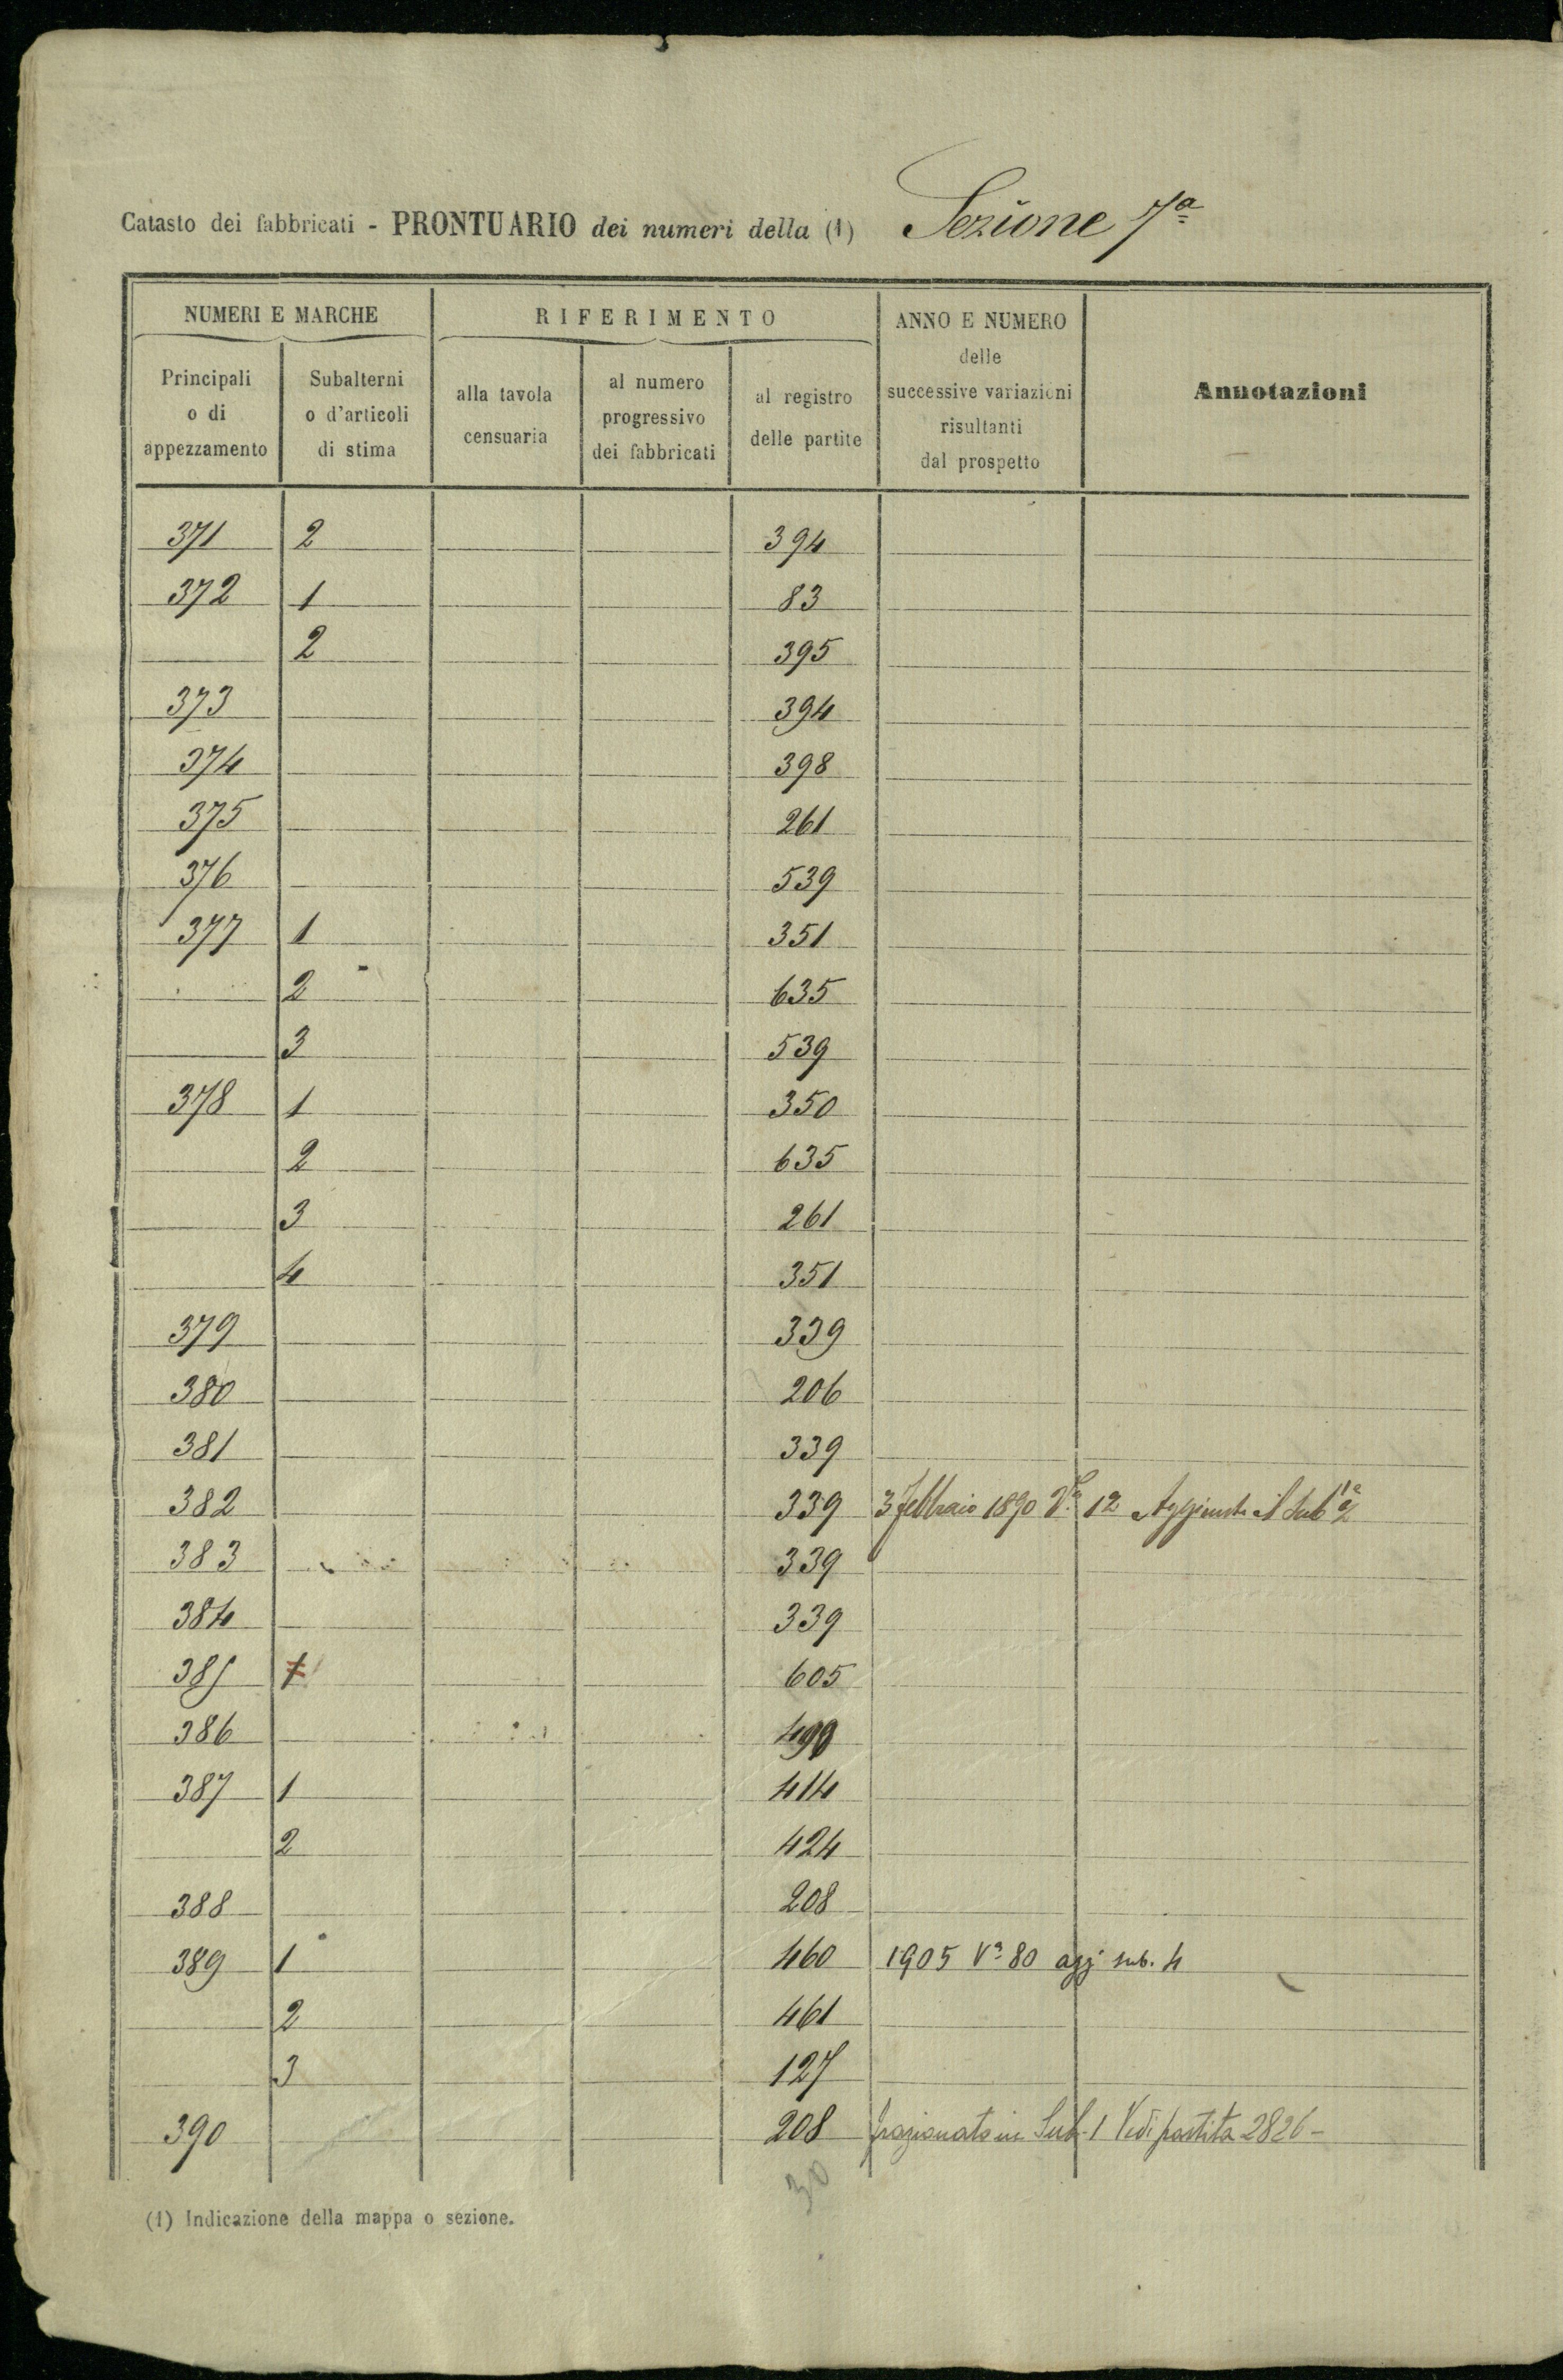 Catasto dei fabbricati - PRONTUARIO dei numeri della (1) Sezione 7ª
NUMERI E MARCHE RIFERIMENTO ANNO E NUMERO delle successive variazioni risultanti dal prospetto Annotazioni
Principali o di appezzamento Subalterni o d'articoli di stima alla tavola censuaria al numero progressivo dei fabbricati al registro delle partite
371 2 394
372 1 83
2 395
373 394
374 398
375 261
376 539
377 1 351
2 635
3 539
378 1 350
2 635
3 261
4 351
379 339
380 206
381 339
382 339 3 febbraio 1890 Vª 12 Aggiunto il Sub
383 339
384 339
385 1 605
386 499
387 1 414
2 424
388 208
389 1 460 1905 Vª 80 agg sub. 4
2 461
3 127
390 208 frazionato in Sub. 1 Vedi partita 2826 -
30
(1) Indicazione della mappa o sezione.